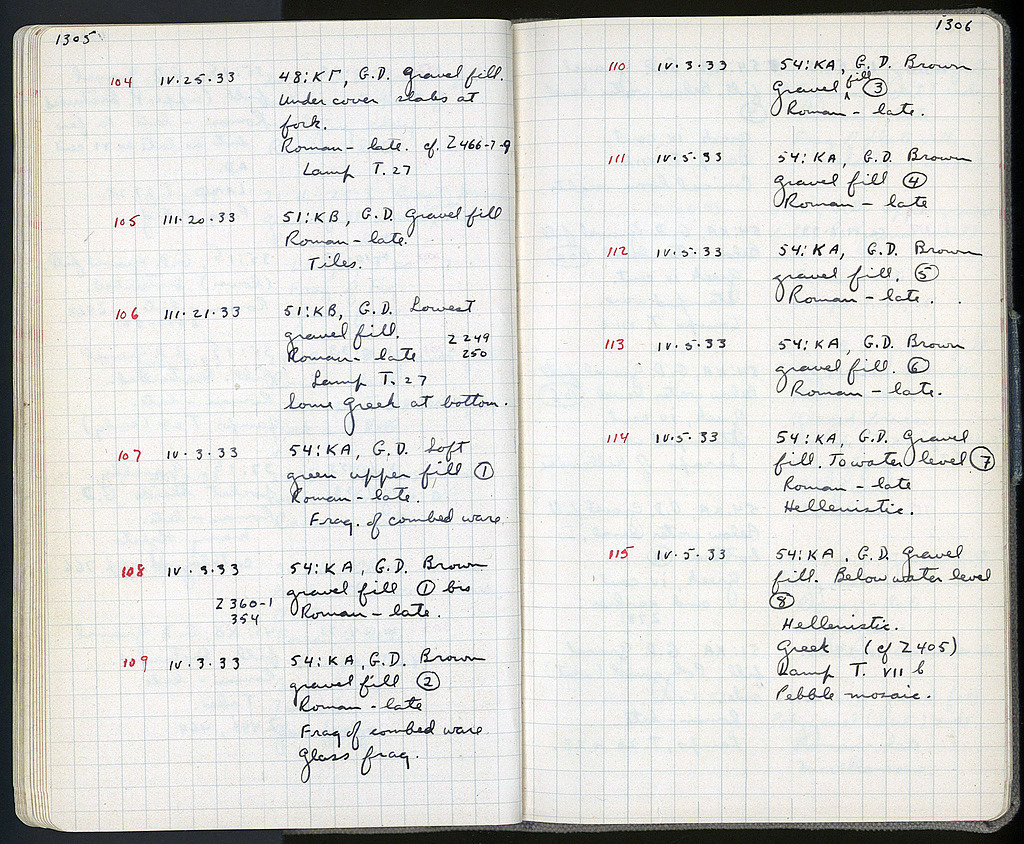 1305
104 IV.25.33 48:KΓ, G.D. Gravel fill.
Under cover slabs at
fork.
Roman – late. cf. Z 466-7-9
Lamp T. 27
105 III.20.33 51:KB, G.D. Gravel fill
Roman – late.
Tiles.
106 III.21.33 51:KB, G.D. Lowest
gravel fill. Z 249
Roman – late 250
Lamp T. 27
Some Greek at bottom.
107 IV.3.33 54:KA, G.D. Soft
green upper fill ①
Roman – late.
Frag. of combed ware.
108 IV.3.33 54:KA, G.D. Brown
gravel fill ① bis
Z 360-1 Roman – late.
354
109 IV.3.33 54:KA, G.D. Brown
gravel fill ②
Roman – late
Frag of combed ware.
Glass frag.
1306
110 IV.3.33 54:KA, G.D. Brown
Gravel fill ③
Roman – late.
111 IV.5.33 54:KA, G.D. Brown
gravel fill ④
Roman – late
112 IV.5.33 54:KA, G.D. Brown
gravel fill. ⑤
Roman – late.
113 IV.5.33 54:KA, G.D. Brown
gravel fill. ⑥
Roman – late.
114 IV.5.33 54:KA, G.D. Gravel
fill. To water level ⑦
Roman – late
Hellenistic.
115 IV.5.33 54:KA, G.D. Gravel
fill. Below water level
⑧
Hellenistic.
Greek (cf Z 405)
Lamp T. VII b
Pebble mosaic.